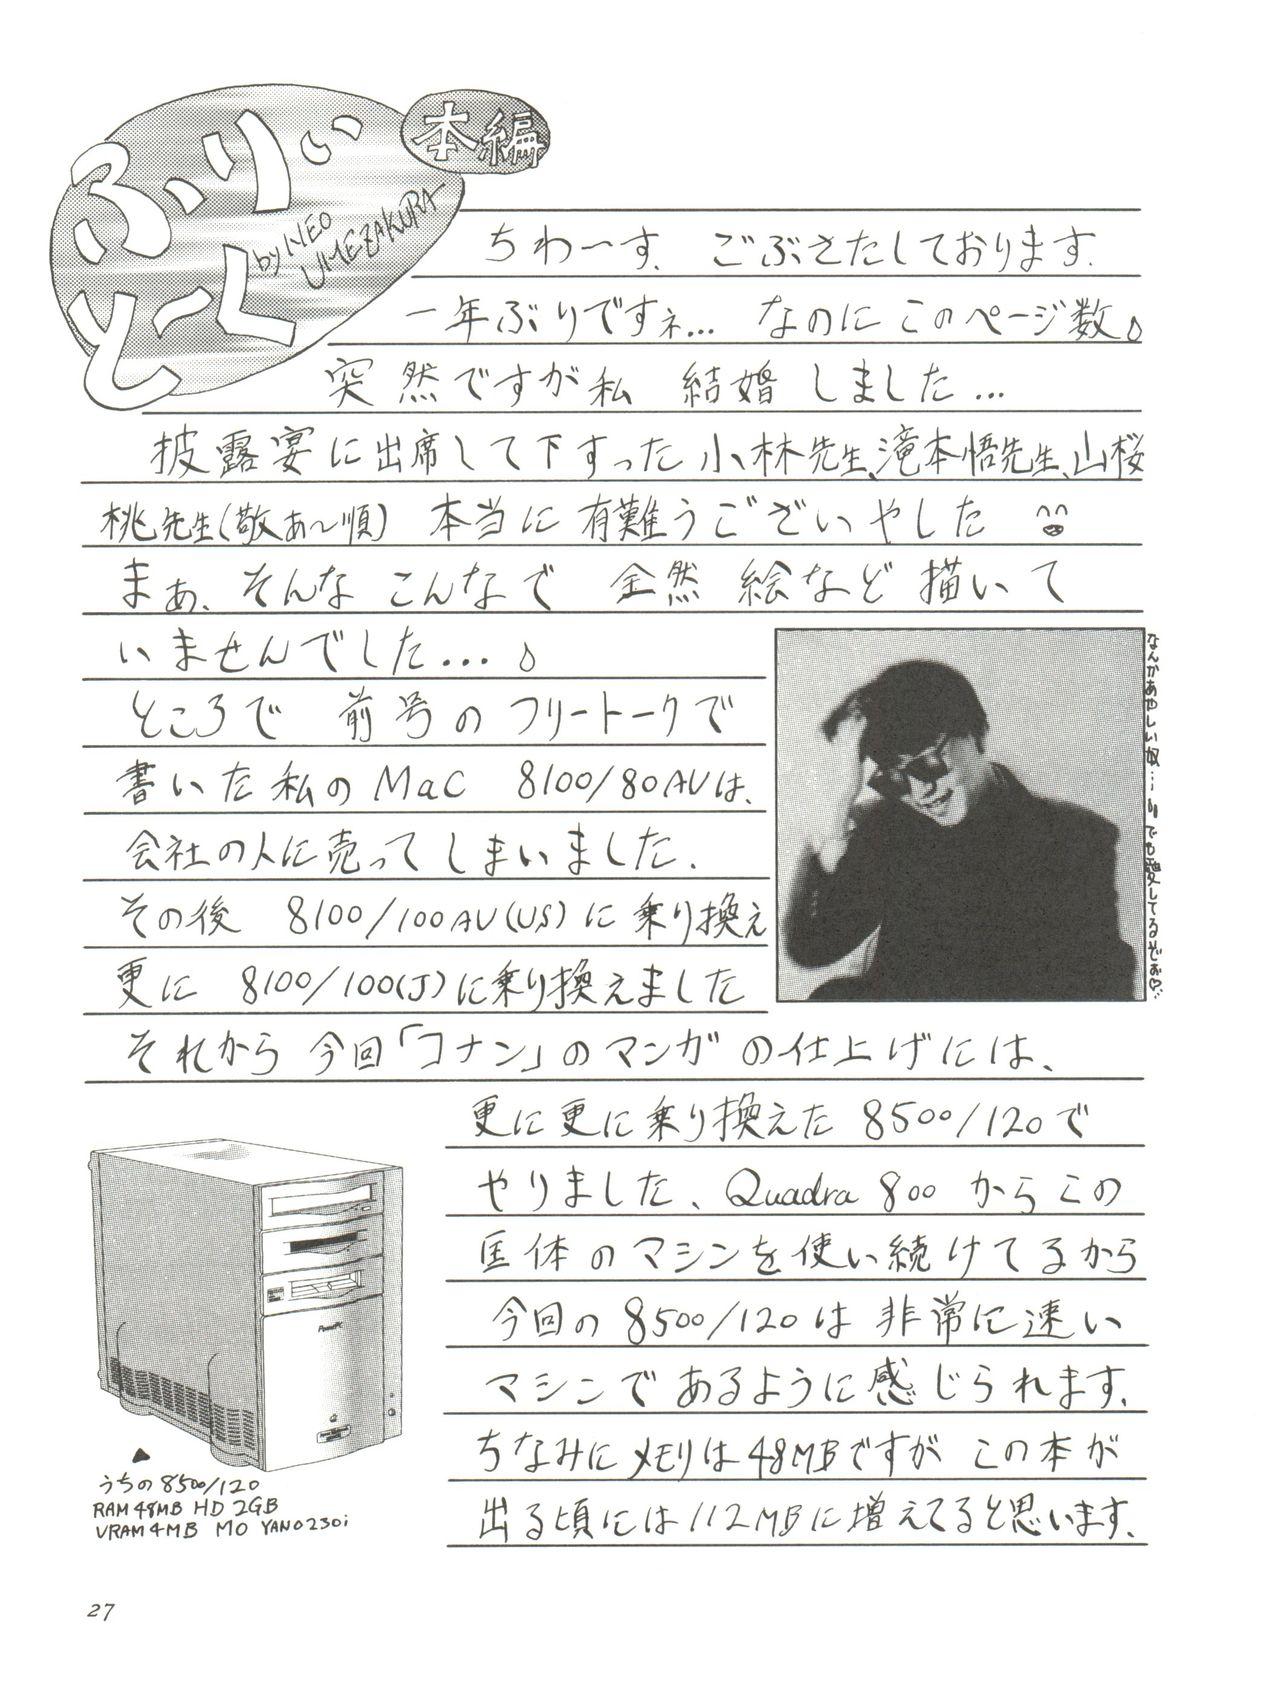 ふりぃ
とーく
本編
by NEO
UMEZAKURA
ちわ〜す、ごぶさたしております.
一年ぶりですネ... なのにこのページ数♪
突然ですが私 結婚しました...
披露宴に出席して下すった小林先生、滝本悟先生、山桜
桃先生(敬あ〜順) 本当に有難うございやした ^^
まぁ、そんなこんなで 全然 絵など描いて
いませんでした...♪
ところで 前号のフリートークで
書いた私のMac 8100/80AVは、
会社の人に売ってしまいました.
その後 8100/100AV(US)に乗り換え
更に 8100/100(J)に乗り換えました
それから今回「コナン」のマンガの仕上げには、
更に更に乗り換えた 8500/120で
やりました、Quadra 800からこの
匡体のマシンを使い続けてるから
今回の8500/120は非常に速い
マシンであるように感じられます.
ちなみにメモリは48MBですが この本が
出る頃には112MBに増えてると思います.
なんかあやしい奴...!! でも愛してるぞぉ♡
PowerPC
うちの8500/120
RAM48MB HD 2GB
VRAM4MB MO YANO230i
27